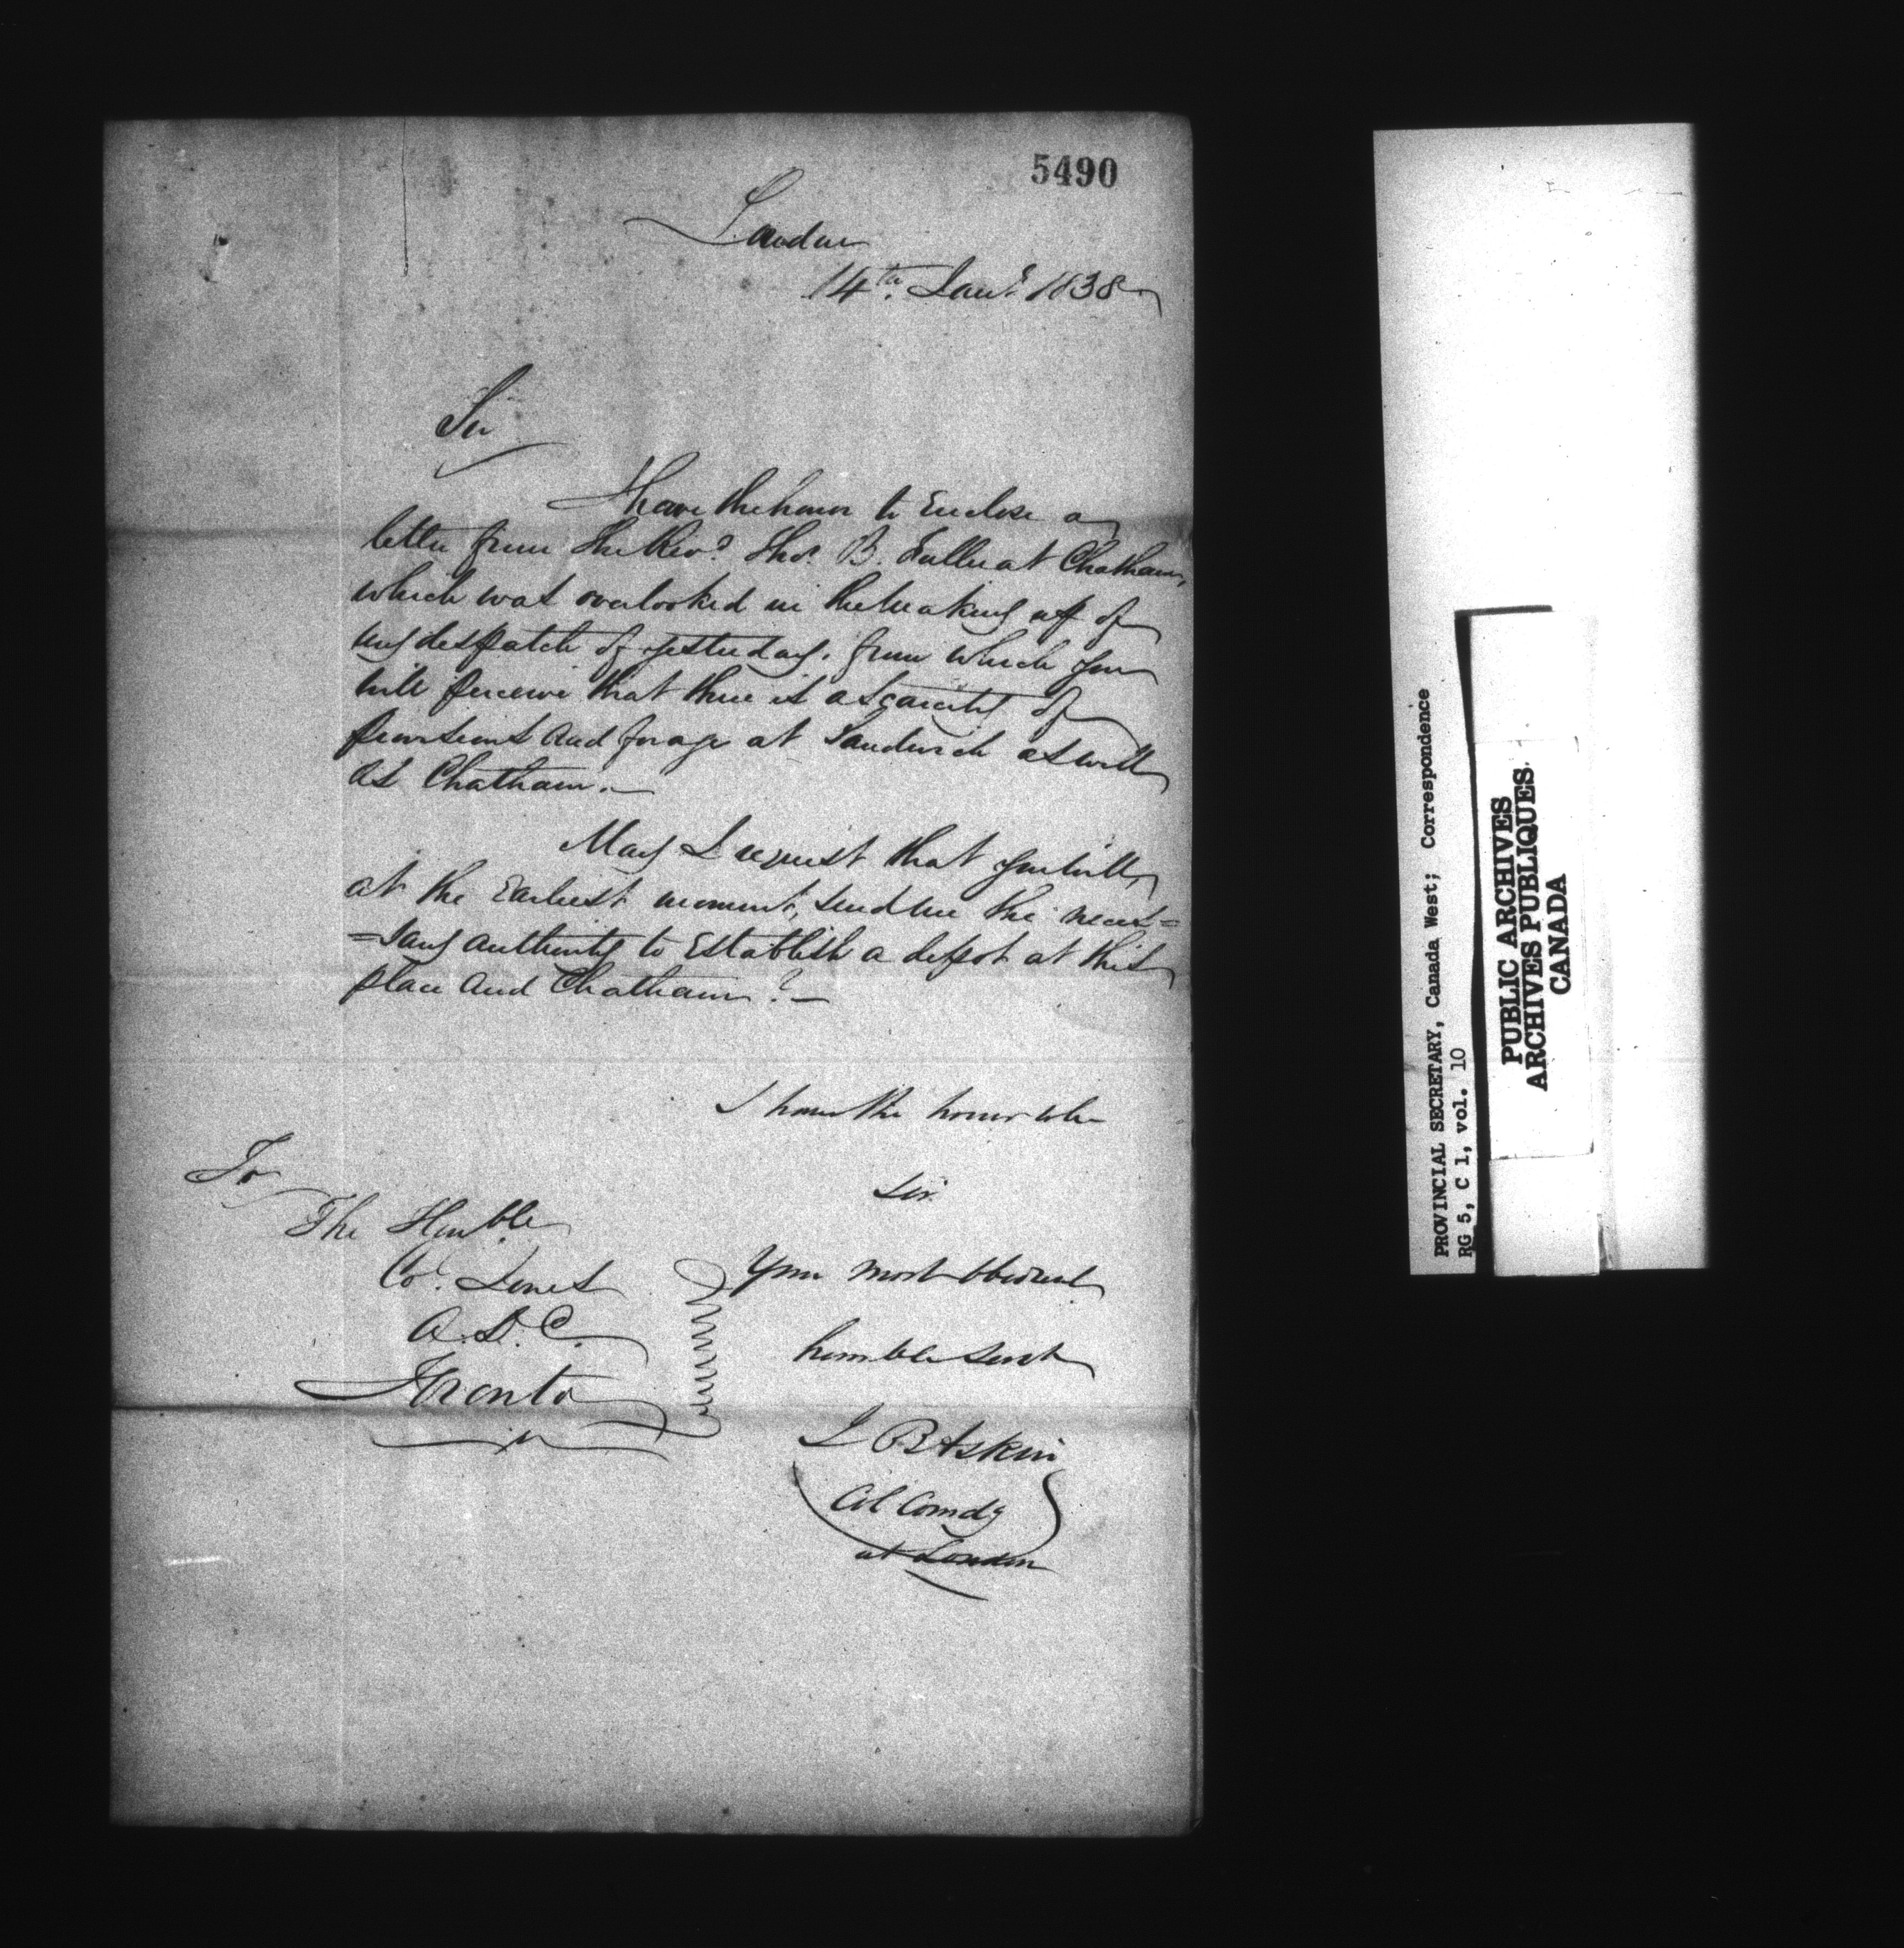 5490
London
14th. Jany. 1838
Sir
I have the honor to Enclose a
letter from the Revd. Thos. B. Fuller at Chatham,
which was overlooked in the making up of
my despatch of yesterday, from which you
will perceive that there is a scarcity of
provisions and forage at Sandwich as well
as Chatham.—
May I request that you will,
at the Earliest moment, send me the neces=
=sary authority to Establish a depot at this
place and Chatham?—
I have the honor to be
Sir
Your most obedient
humble Servt
J B Askin
Col Comdg
at London
To
The Honble.
Col. Jones
A.D.C.
Toronto
PROVINCIAL SECRETARY, Canada West; Correspondence
RG 5, C 1, vol. 10
PUBLIC ARCHIVES
ARCHIVES PUBLIQUES
CANADA